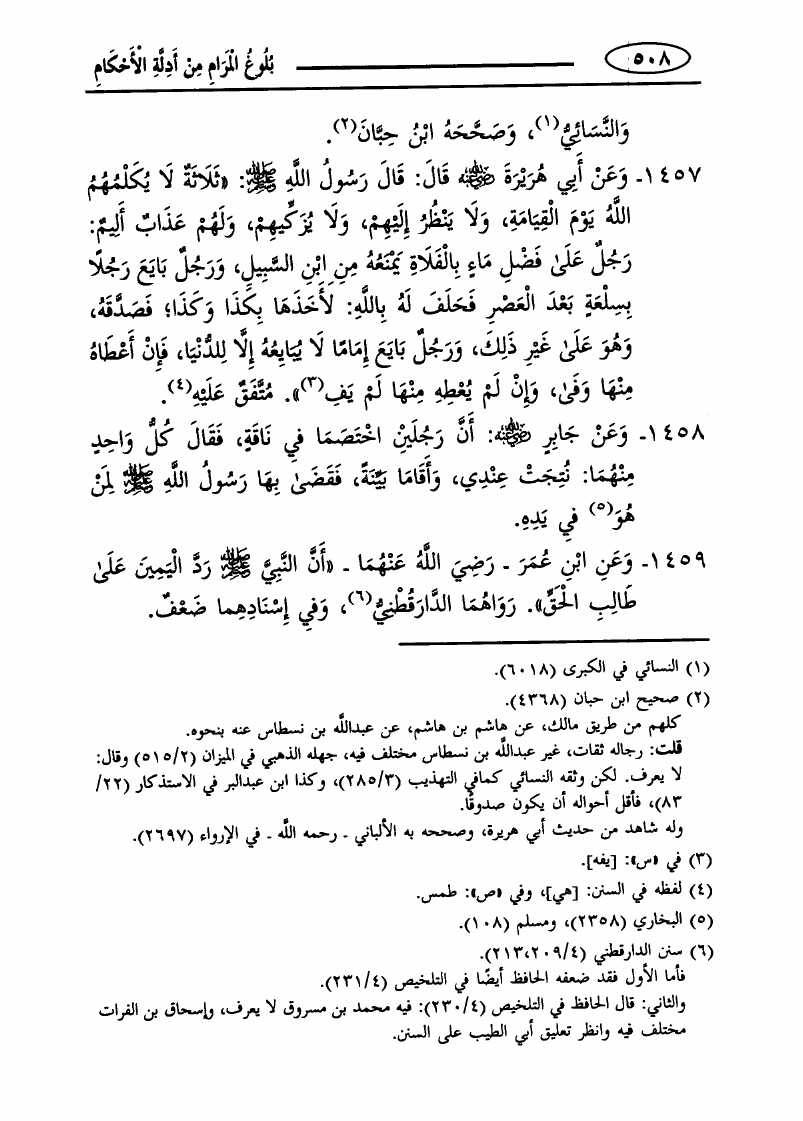 ٥٠٨ بُلُوغُ الْمَرَامِ مِنْ أَدِلَّةِ الْأَحْكَامِ
وَالنَّسَائِيُّ(١)، وَصَحَّحَهُ ابْنُ حِبَّانَ(٢).
١٤٥٧- وَعَنْ أَبِي هُرَيْرَةَ رضي الله عنه قَالَ: قَالَ رَسُولُ اللَّهِ ﷺ: «ثَلَاثَةٌ لَا يُكَلِّمُهُمُ
اللَّهُ يَوْمَ الْقِيَامَةِ، وَلَا يَنْظُرُ إِلَيْهِمْ، وَلَا يُزَكِّيهِمْ، وَلَهُمْ عَذَابٌ أَلِيمٌ:
رَجُلٌ عَلَىٰ فَضْلِ مَاءٍ بِالْفَلَاةِ يَمْنَعُهُ مِنِ ابْنِ السَّبِيلِ، وَرَجُلٌ بَايَعَ رَجُلًا
بِسِلْعَةٍ بَعْدَ الْعَصْرِ فَحَلَفَ لَهُ بِاللَّهِ: لَأَخَذَهَا بِكَذَا وَكَذَا؛ فَصَدَّقَهُ،
وَهُوَ عَلَىٰ غَيْرِ ذَلِكَ، وَرَجُلٌ بَايَعَ إِمَامًا لَا يُبَايِعُهُ إِلَّا لِلدُّنْيَا، فَإِنْ أَعْطَاهُ
مِنْهَا وَفَىٰ، وَإِنْ لَمْ يُعْطِهِ مِنْهَا لَمْ يَفِ(٣)». مُتَّفَقٌ عَلَيْهِ(٤).
١٤٥٨- وَعَنْ جَابِرٍ رضي الله عنه: أَنَّ رَجُلَيْنِ اخْتَصَمَا فِي نَاقَةٍ، فَقَالَ كُلُّ وَاحِدٍ
مِنْهُمَا: نُتِجَتْ عِنْدِي، وَأَقَامَا بَيِّنَةً، فَقَضَىٰ بِهَا رَسُولُ اللَّهِ ﷺ لِمَنْ
هُوَ(٥) فِي يَدِهِ.
١٤٥٩- وَعَنِ ابْنِ عُمَرَ - رَضِيَ اللَّهُ عَنْهُمَا - «أَنَّ النَّبِيَّ ﷺ رَدَّ الْيَمِينَ عَلَىٰ
طَالِبِ الْحَقِّ». رَوَاهُمَا الدَّارَقُطْنِيُّ(٦)، وَفِي إِسْنَادِهِما ضَعْفٌ.
(١) النسائي في الكبرى (٦٠١٨).
(٢) صحيح ابن حبان (٤٣٦٨).
كلهم من طريق مالك، عن هاشم بن هاشم، عن عبدالله بن نسطاس عنه بنحوه.
قلت: رجاله ثقات، غير عبدالله بن نسطاس مختلف فيه، جهله الذهبي في الميزان (٥١٥/٢) وقال:
لا يعرف. لكن وثقه النسائي كمافي التهذيب (٢٨٥/٣)، وكذا ابن عبدالبر في الاستذكار (٢٢/
٨٣)، فأقل أحواله أن يكون صدوقًا.
وله شاهد من حديث أبي هريرة، وصححه به الألباني - رحمه الله - في الإرواء (٢٦٩٧).
(٣) في «س»: [يفه].
(٤) لفظه في السنن: [هي]، وفي «ص»: طمس.
(٥) البخاري (٢٣٥٨)، ومسلم (١٠٨).
(٦) سنن الدارقطني (٢١٣،٢٠٩/٤).
فأما الأول فقد ضعفه الحافظ أيضًا في التلخيص (٢٣١/٤).
والثاني: قال الحافظ في التلخيص (٢٣٠/٤): فيه محمد بن مسروق لا يعرف، وإسحاق بن الفرات
مختلف فيه وانظر تعليق أبي الطيب على السنن.